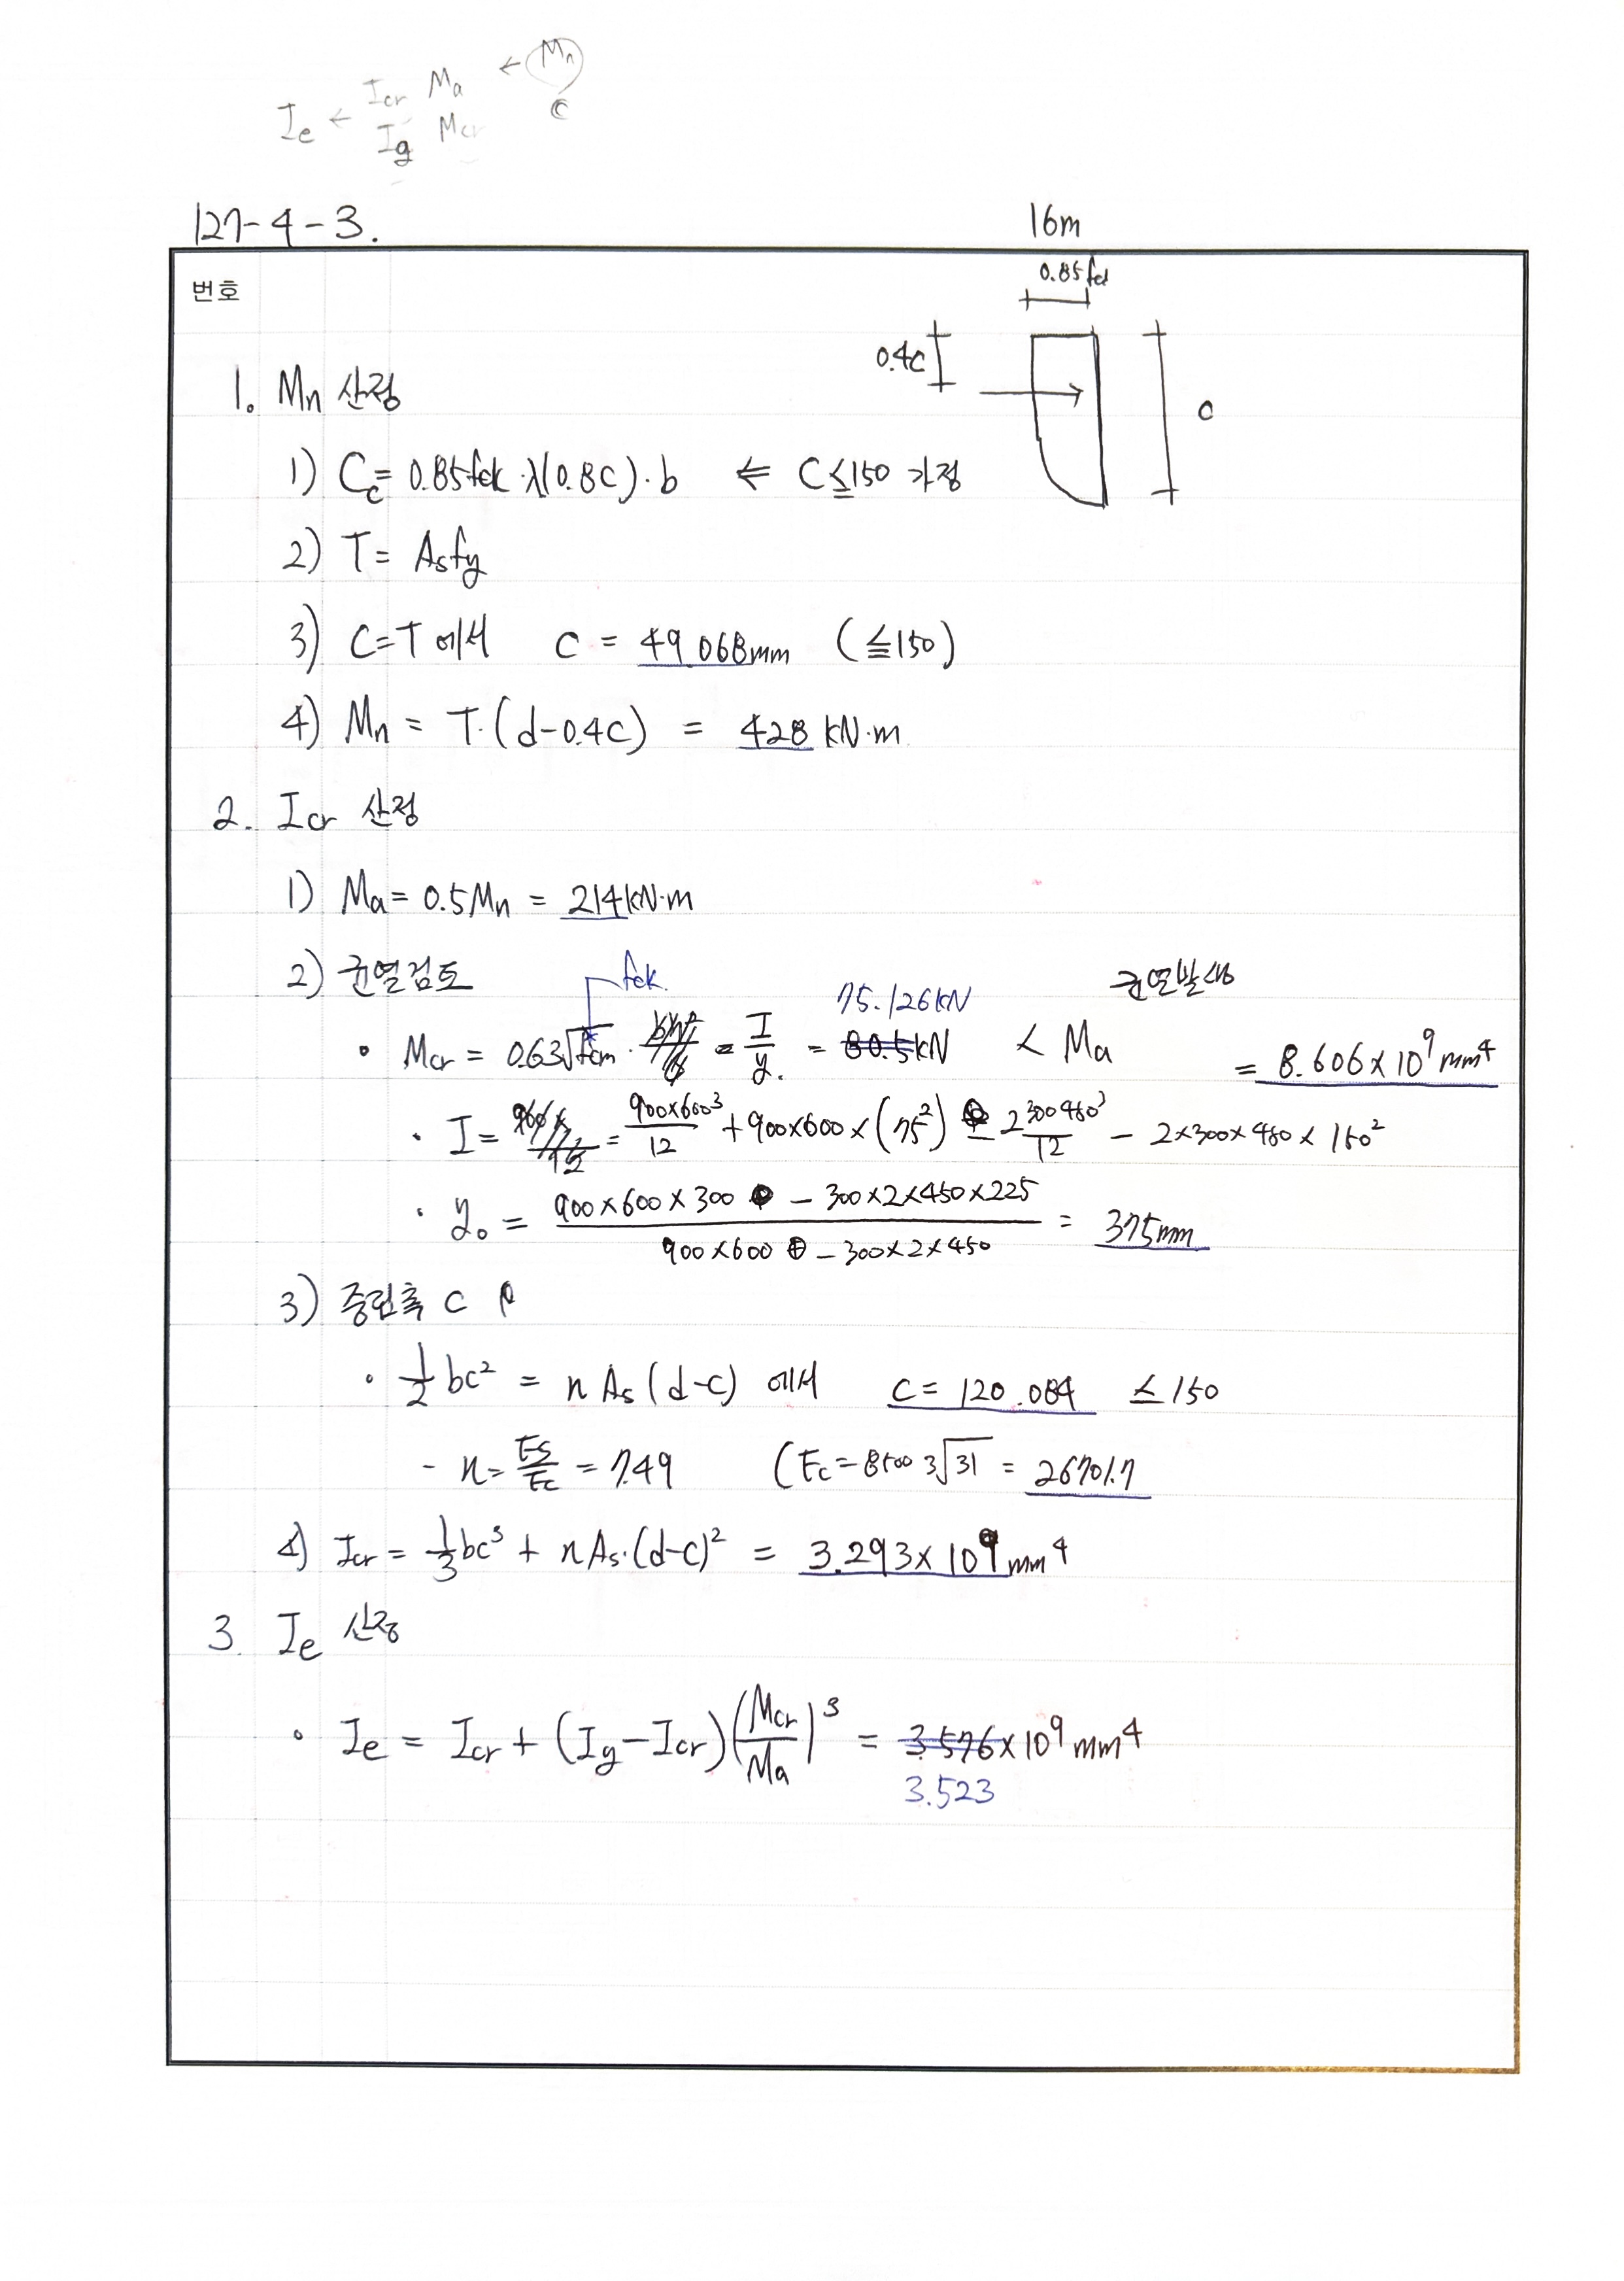 Ie ← Icr Ma ← Mn
Ig Mcr c
127-4-3. 16m
번호
0.85fck
0.4c
c
1. Mn 산정
1) Cc = 0.85fck·λ(0.8C)·b ⇐ C≦150 가정
2) T = Asfy
3) C=T 에서 C = 49.068mm (≦150)
4) Mn = T·(d-0.4C) = 428 kN·m
2. Icr 산정
1) Ma = 0.5Mn = 214kN·m
2) 균열검토 fck. 75.126kN 균열발생
• Mcr = 0.63√fcm · = I/y. = 80.5kN < Ma = 8.606×10⁹mm⁴
· I = = 900×600³/12 + 900×600×(75²) - 2 300 450³/12 - 2×300×450×150²
· y₀ = (900×600×300 - 300×2×450×225)/(900×600 - 300×2×450) = 375mm
3) 중립축 C
· 1/2 bc² = n As(d-c) 에서 C = 120.084 ≤150
- n = Es/Ec = 7.49 (Ec = 8500 3√31 = 26701.7
4) Icr = 1/3 bc³ + nAs·(d-c)² = 3.293×10⁹mm⁴
3. Ie 산정
• Ie = Icr + (Ig-Icr)(Mcr/Ma)³ = 3.576×10⁹mm⁴
3.523